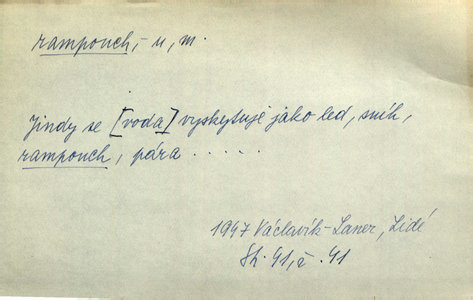 rampouch, -u, m.
Jindy se [voda] vyskytuje jako led, sníh,
rampouch, pára . . . . .
1947 Václavík-Laner, Lidé
41, č. 41